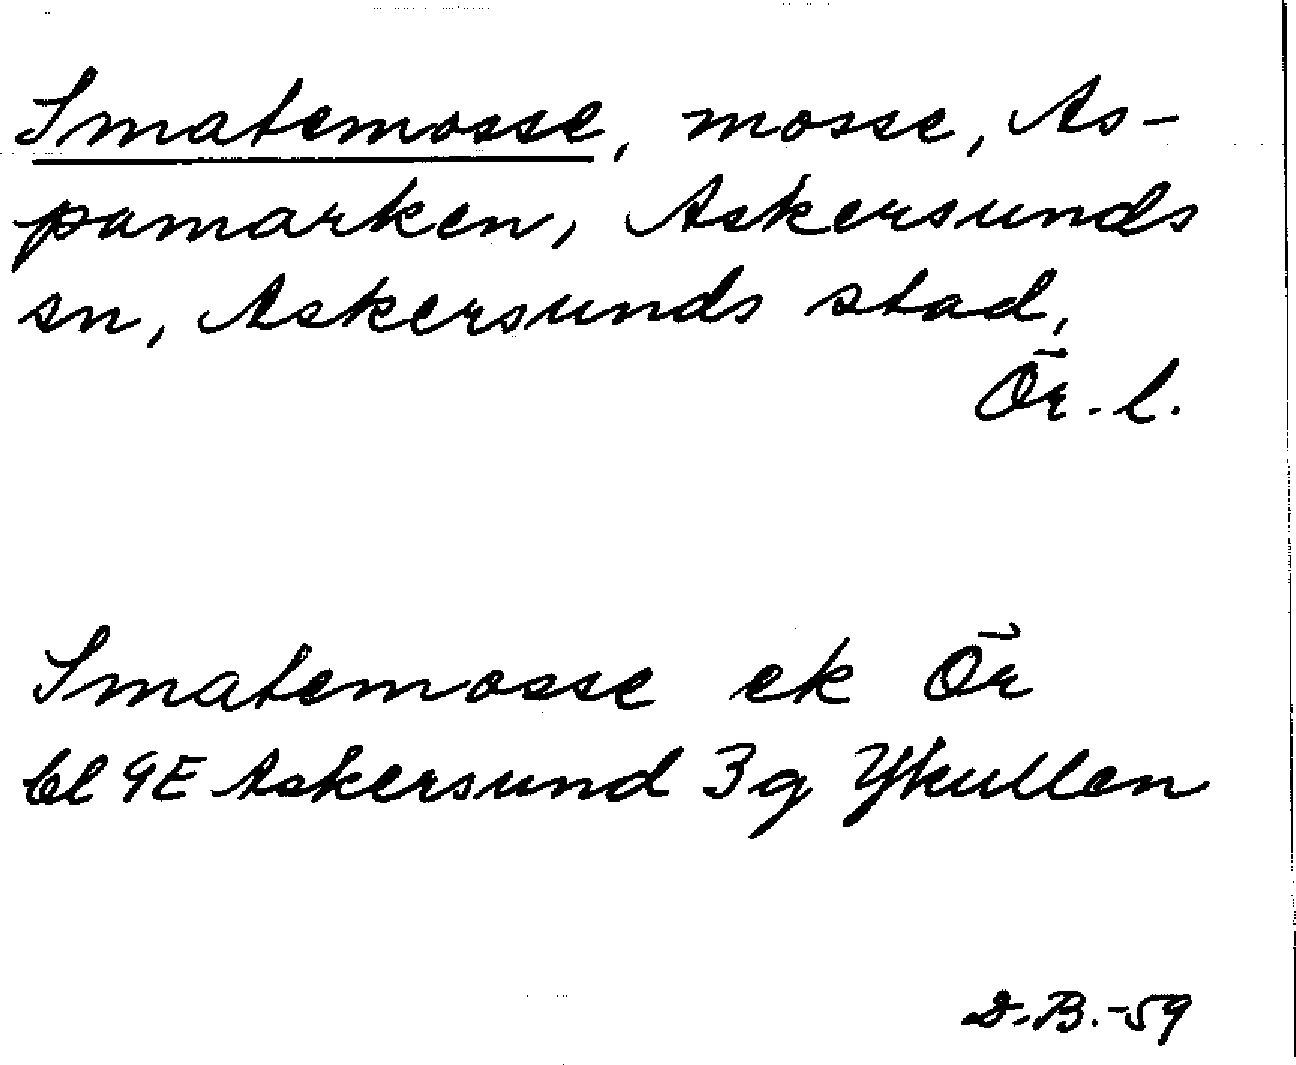 Smatemosse, mosse, As-
pamarken, Askersunds
sn, Askersunds stad,
Ör. l.
Smatemosse ek Ör
bl 9E Askersund 3g Ykullen
D.B.-59